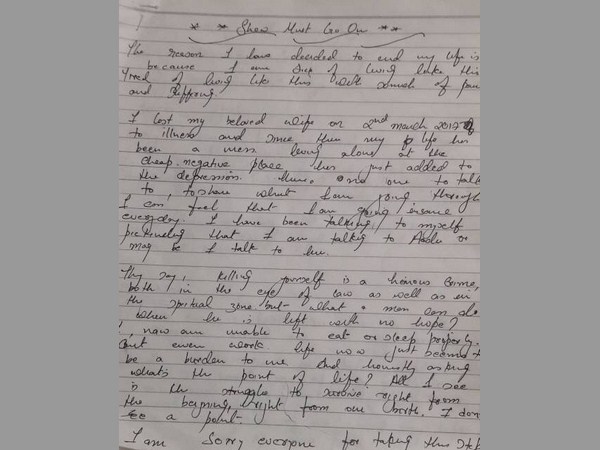 * * Show Must Go On * *
The reason I have decided to end my life is
because I am sick of living like this
Tired of living like this with much of pain
and suffering
I lost my beloved wife on 2nd March 2017
to illness and since then my life has
been a mess living alone at the
cheap negative place has just added to
the depression. There no one to talk
to, to share what I am going through
I can feel that I am going insane
everyday. I have been talking to myself
pretending that I am talking to or
may be I talk to her.
They say, killing yourself is a heinous crime,
both in the eye of law as well as in
the spritual zone but what a man can do
when he is left with no hope?
I, now am unable to eat or sleep properly.
but even work life now just seems to
be a burden to me. And honestly asking
whats the point of life? All I see
is the struggle to survive right from
the begining, right from our birth. I don
see a point.
I am Sorry everyone for taking this step